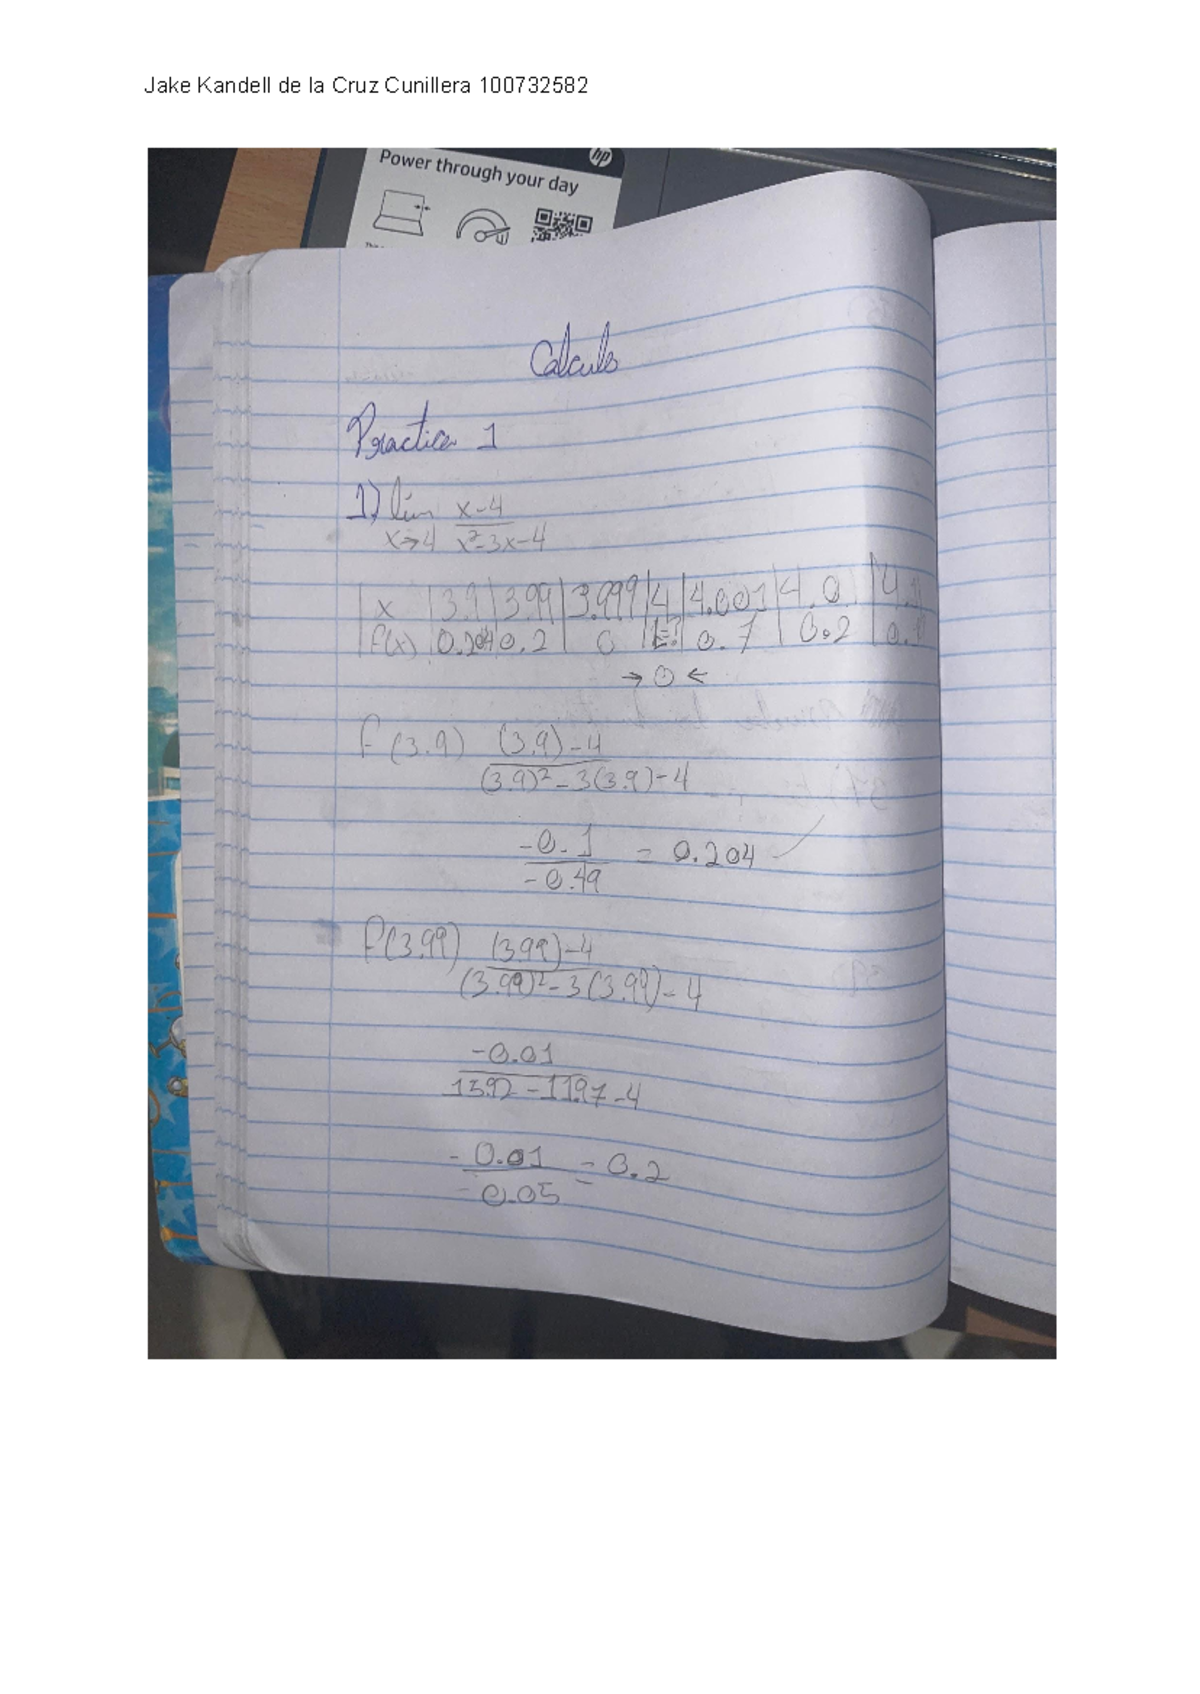 Jake Kandell de la Cruz Cunillera 100732582
hp
Power through your day
Calculo
Practica 1
1) lim x-4
x→4 x²-3x-4
x | 3.9 | 3.99 | 3.999 | 4 | 4.001 | 4.0 | 4.1
f(x) | 0.204 | 0.2 | 0 | | 0.7 | 0.2 | 0.
→ 0 ←
f(3.9) (3.9)-4
(3.9)²-3(3.9)-4
-0.1 = 0.204
-0.49
f(3.99) (3.99)-4
(3.99)²-3(3.99)-4
-0.01
15.92-11.97-4
-0.01 = 0.2
-0.05